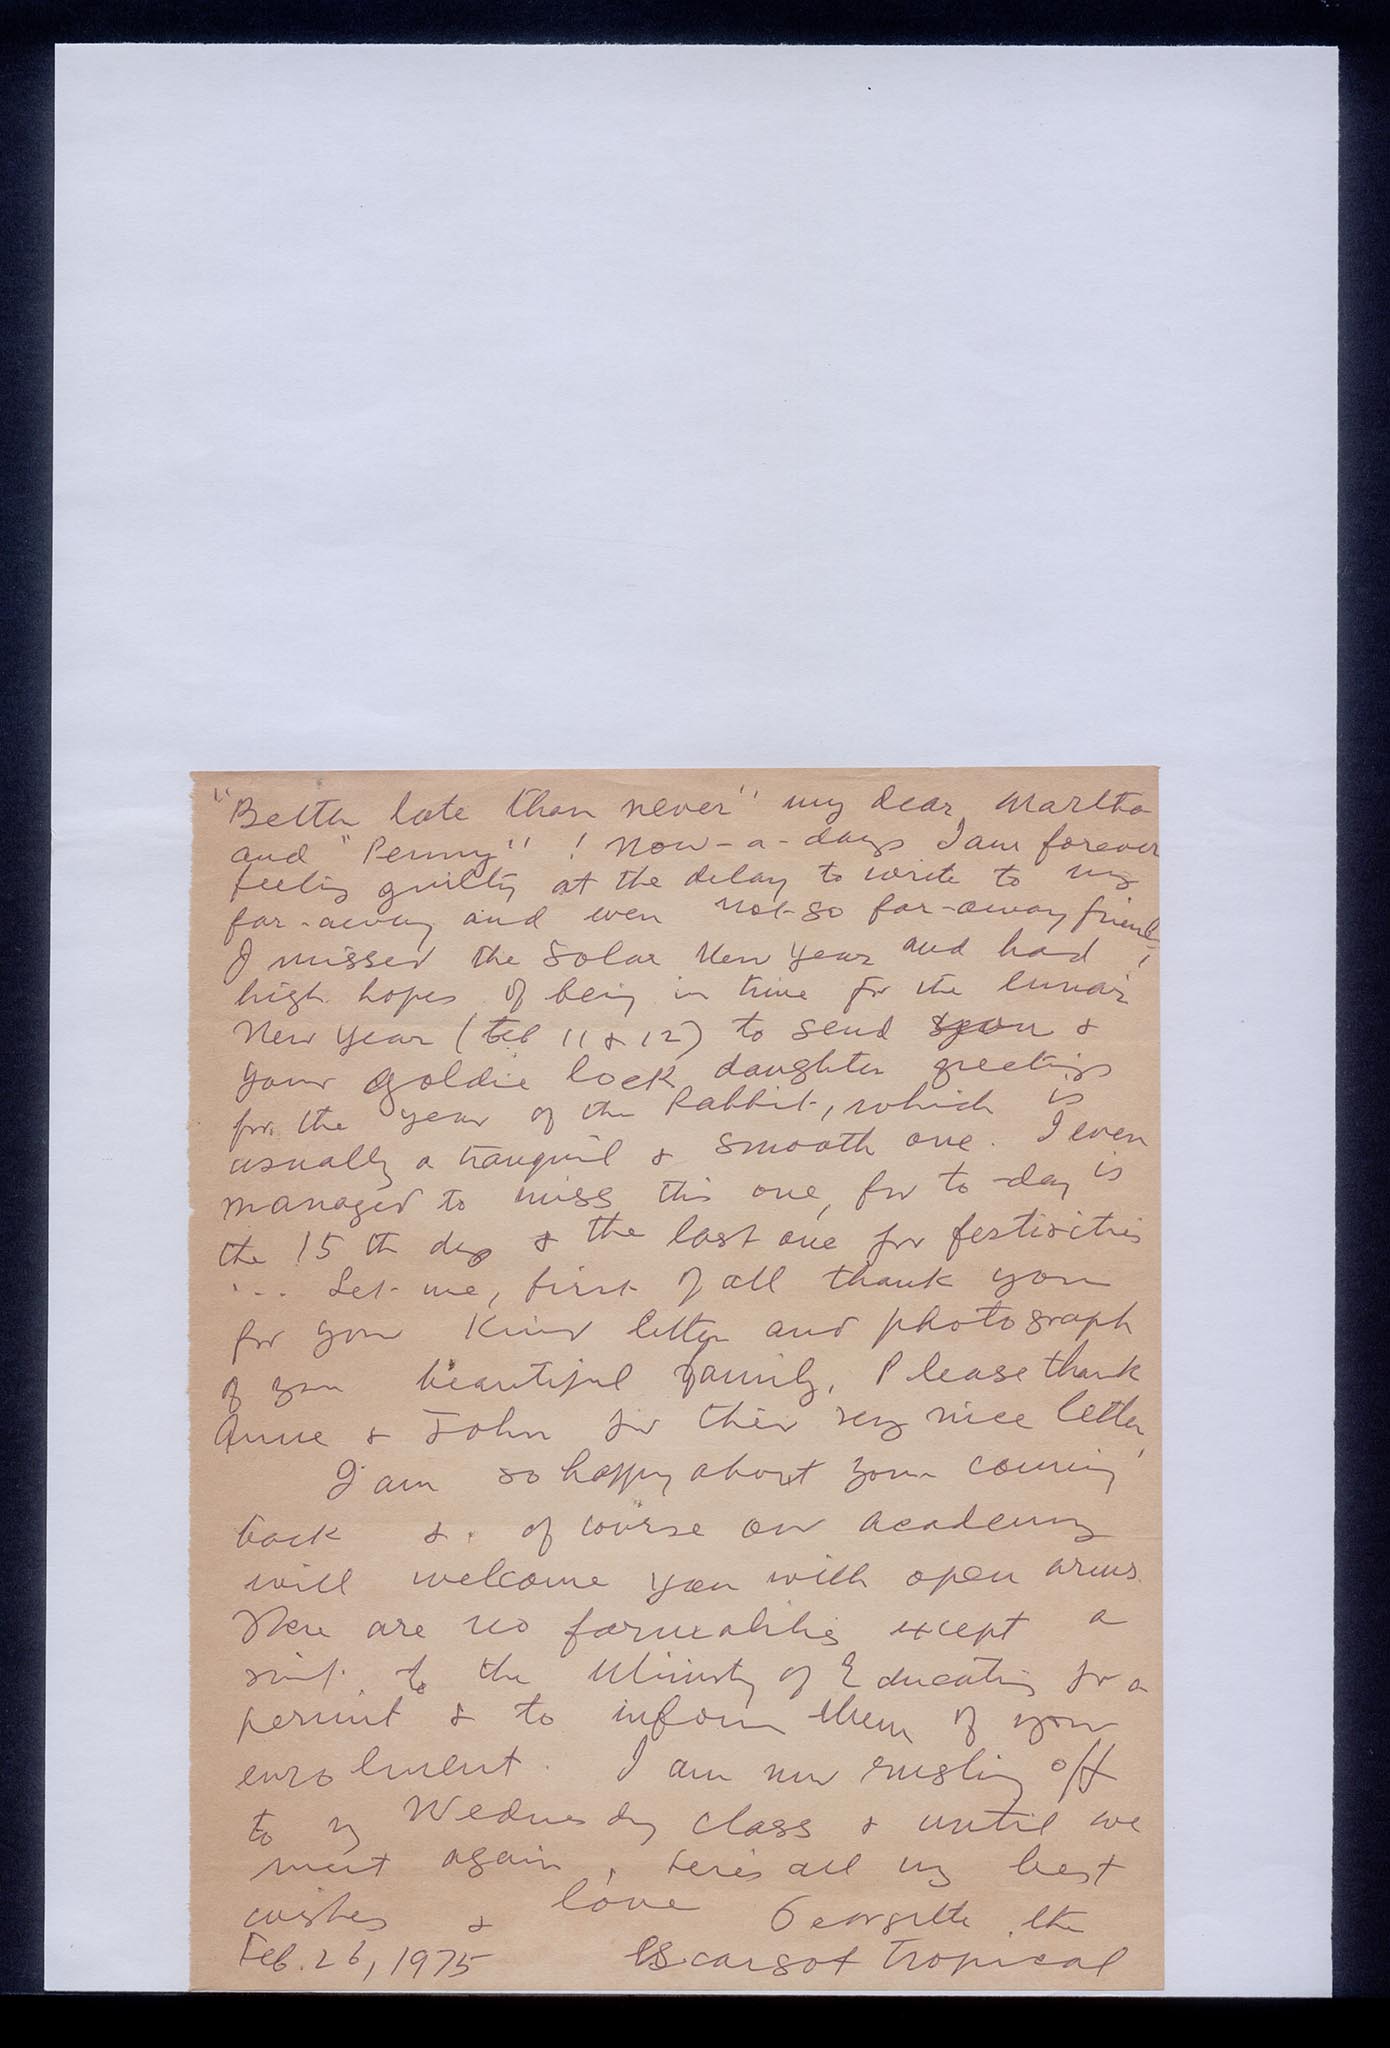 "Better late than never" my dear Martha
and "Penny"! Now-a-days I am forever
feeling guilty at the delay to write to my
far-away and even not-so far-away friends,
I missed the Solar New Year and had
high hopes of being in time for the lunar
New Year (Feb 11 & 12) to send you &
your goldie lock daughter greetings
for the year of the Rabbit, which is
usually a tranquil & smooth one. I even
managed to miss this one, for to-day is
the 15th day & the last one for festivities
... Let me, first of all thank you
for your kind letter and photograph
of your beautiful family, Please thank
Anne & John for their very nice letter,
I am so happy about your coming
back & of course our academy
will welcome you with open arms.
There are no formalities except a
visit to the Ministry of Education for a
permit & to inform them of your
enrolment. I am now rushing off
to my Wednesday class & until we
meet again, here's all my best
wishes & love Georgette the
Feb. 26, 1975 Escargot tropical